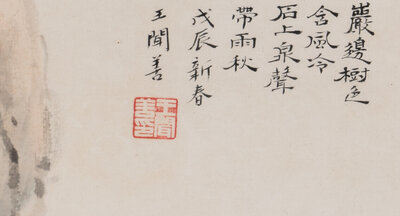 巖邊樹色
含風冷
石上泉聲
帶雨秋
戊辰新春
王聞善
王聞
善印